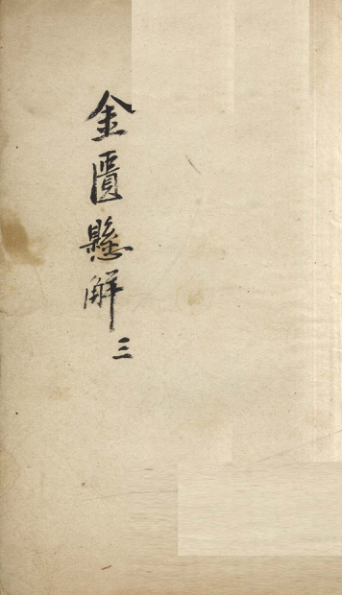 金匱懸解 三